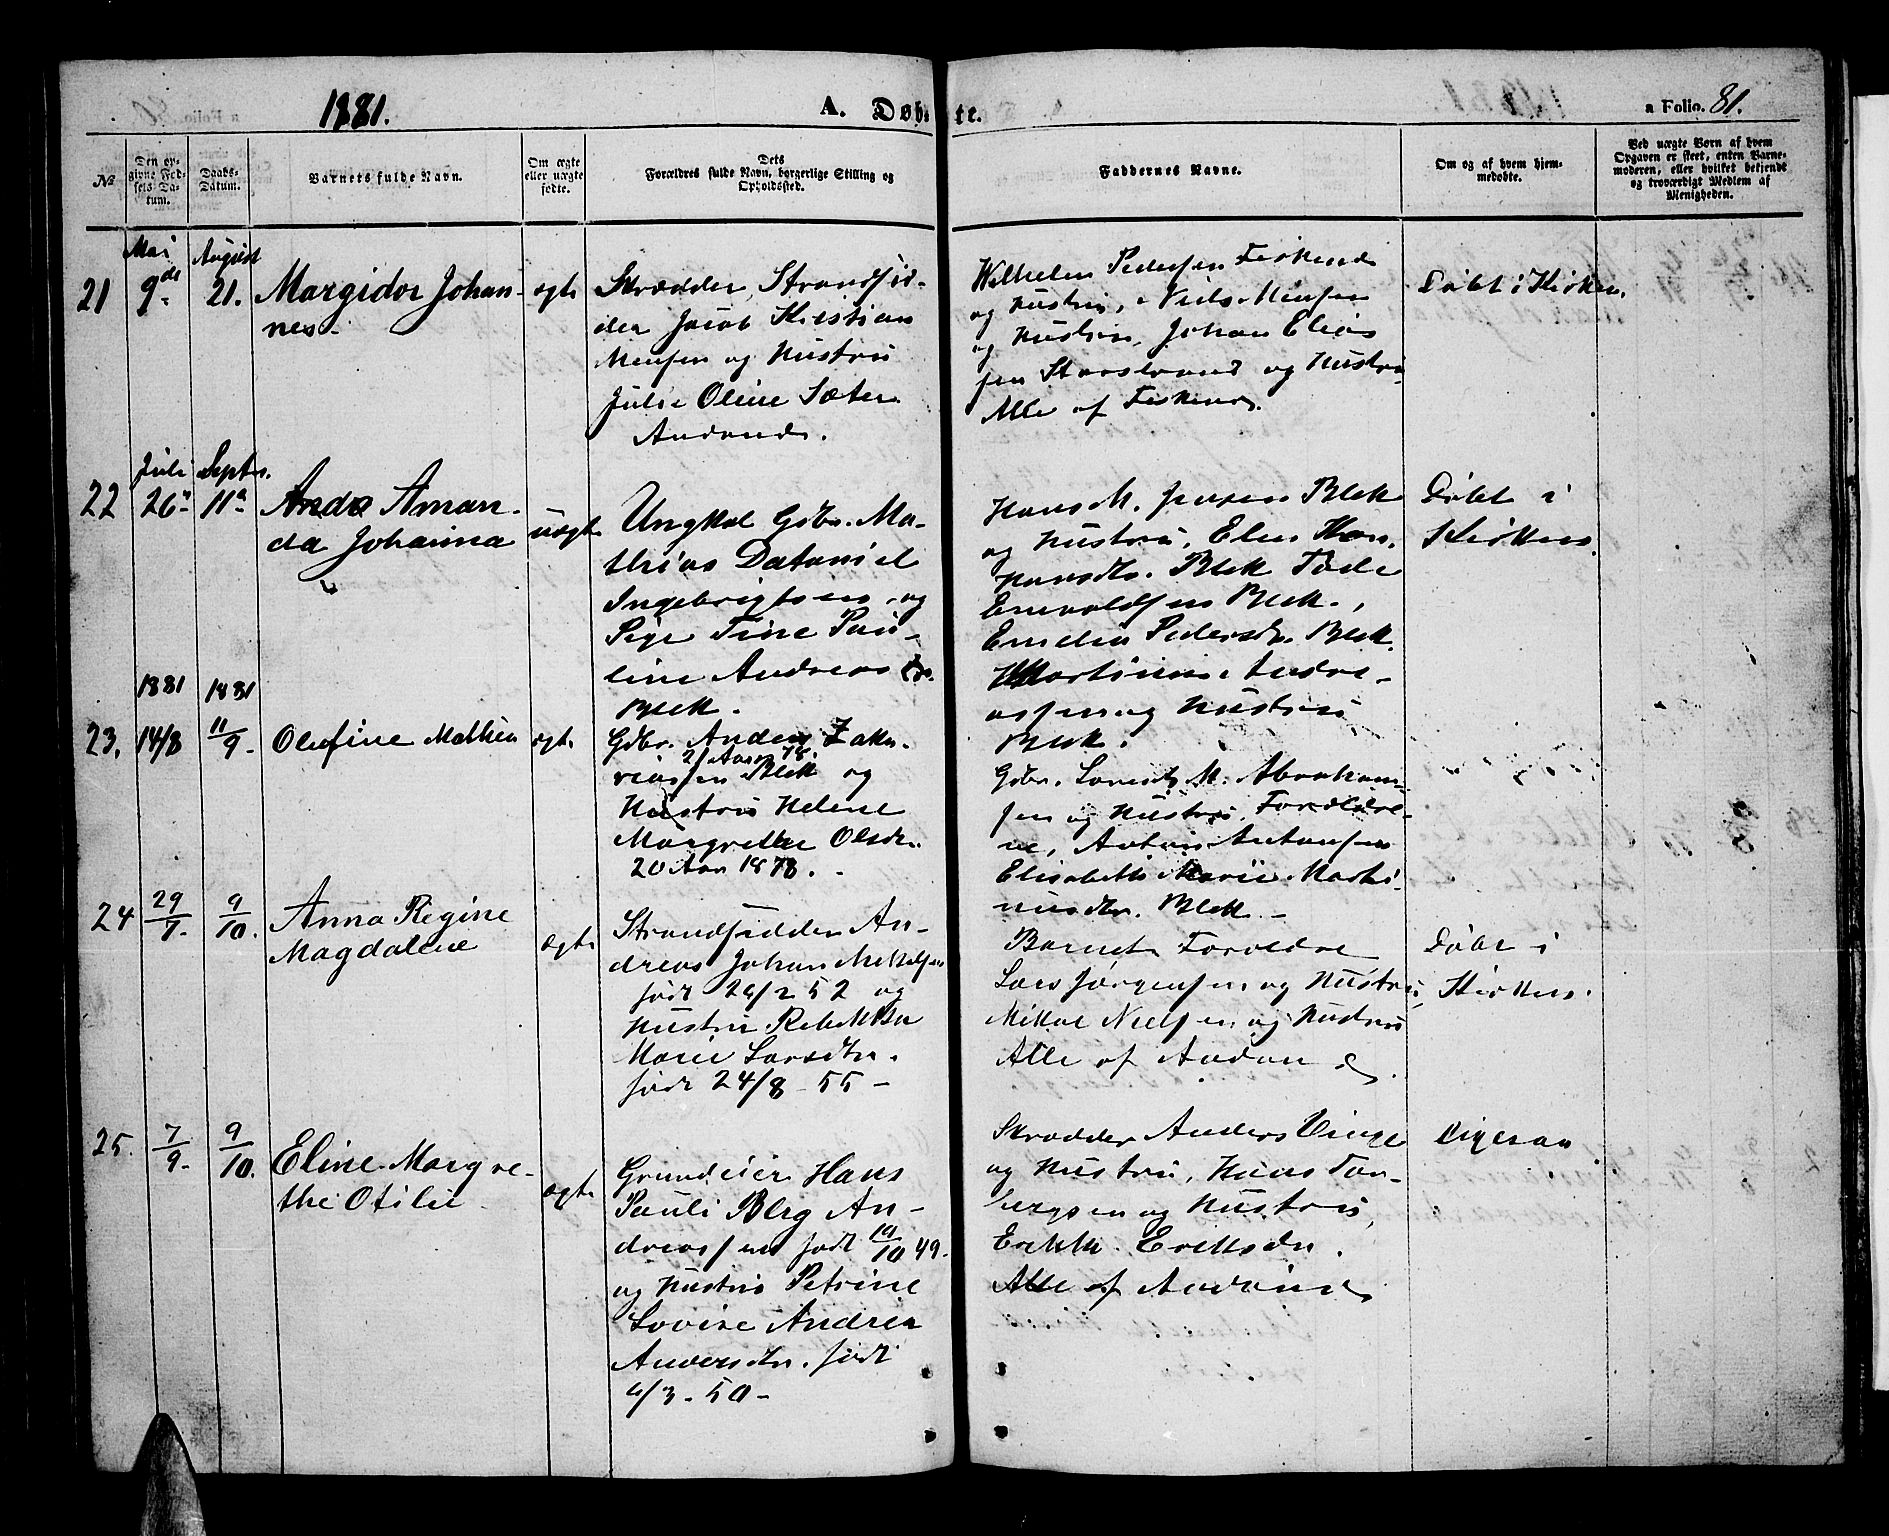 1881.
A. Døbte.
a Folio. 81.
№
Den opgivne Fødsels Datum.
Daabs-Datum.
Barnets fulde Navn.
Om ægte eller uægte fødte.
Dets Forældres fulde Navn, borgerlige Stilling og Opholdssted.
Faddernes Navne.
Om og af hvem hjemmedøbte.
Ved uægte Børn af hvem Opgaven er skeet, enten Barnemoderen, eller hvilket betjendt og troværdigt Medlem af Menigheden.
21
Mai
9de
August
21.
Margidor Johan-
nes.
ægte
Skrædder, Strandsid-
der Jacob Kristian
Mensen og Hustru
Julie Oline Sæter
Wilhelm Pedersen
og Hustru, Niels Mensen
og Hustru, Johan Elias
sen Storstrand og Hustru
Alle af
Døbt i Kirken.
22
Juli
26
Septbr.
11
Aman-
da Johanna
uægte
Ungkal Gdbr. Ma-
thias Dataniel
Ingebrigtsen og
Pige Tine Pau-
line Andreasdtr.
Blek.
Hans M. Blek
og Hustru, Elen
Hansdtr. Blek
Enevoldsen Blek.,
Emelia Pedersdtr. Blek.
Martinus Andre-
assen og Hustru
Blek.
Døbt i
Kirken.
23.
1881
14/8
1881
11/9
Olufine Mathea
ægte
Gdbr. Anders Zaka-
21 Aar 78
riassen Blek og
Hustru Helene
Margrethe Olsdtr.
20 Aar 1878.
Gdbr. M. Abraham-
sen og Hustru, Forældre-
ne, Anton Antonsen
Elisabeth Marie Marti-
nusdtr. Blek.
24
29/7.
9/10.
Anna Regine
Magdalene
ægte
Strandsidder An-
dreas Johan Mikkelsen
født 26/2 52 og
Hustru Rebekka
Marie Larsdtr.
født 24/8 - 55 -
Barnets Forældre
Lars Jørgensen og Hustru,
Mikal Nielsen og Hustru
Alle af
Døbt i
Kirken.
25.
7/9.
9/10.
Eline Margre-
the Otilie
ægte
Grundeier Hans
Pauli Berg An-
dreassen født 19/10 49.
og Hustru Petrine
Lovise Andrea
Andersdtr. født
6/3 - 50 -
Skrædder Anders Vinje
og Hustru, Hans Tor-
bergsen og Hustru,
Eriksdtr.
Alle af
Ligesaa